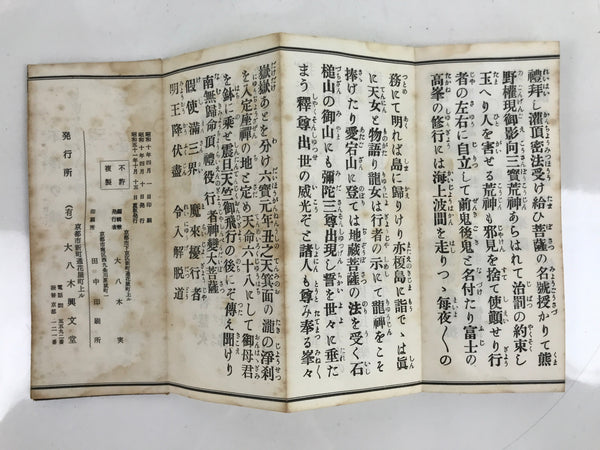 禮拜し灌頂密法受け給ひ菩薩の名號授かりて熊
野權現御影向三寶荒神あらはれて治罰の約束し
玉へり人を害せる荒神も邪見を捨て使顫せり行
者の左右に自立して前鬼後鬼と名付たり富士の
高峯の修行には海上波間を走りつゝ毎夜〳〵の
務にて明れば島に歸りけり亦榎島に詣でゝは眞
に天女と物語り龍女は行者の示にて龍神をこそ
捧けたり愛宕山に登ては地藏菩薩の法を受く石
槌山の御山にも彌陀三尊出現し誓を世々に垂た
まう釋尊出世の威光ぞと諸人も尊み奉る峯々
嶽嶽あとを分け六寶元年丑之年箕面の瀧の淨刹
を入定座禪の地と定め天命六十八にして御母君
を鉢に乘せ震旦天竺御飛行の後にぞ傳え聞けり
南無歸命頂禮役行者神變大菩薩
假使滿三界　魔來擾行者
明王降伏盡　令入解脱道
昭和十年四月一日印刷
昭和十年四月十日發行
不許複製
發行者　大八木　実
印刷所　田中印刷所
京都市新町通花屋町上ル
發行所　(有)　大八木興文堂